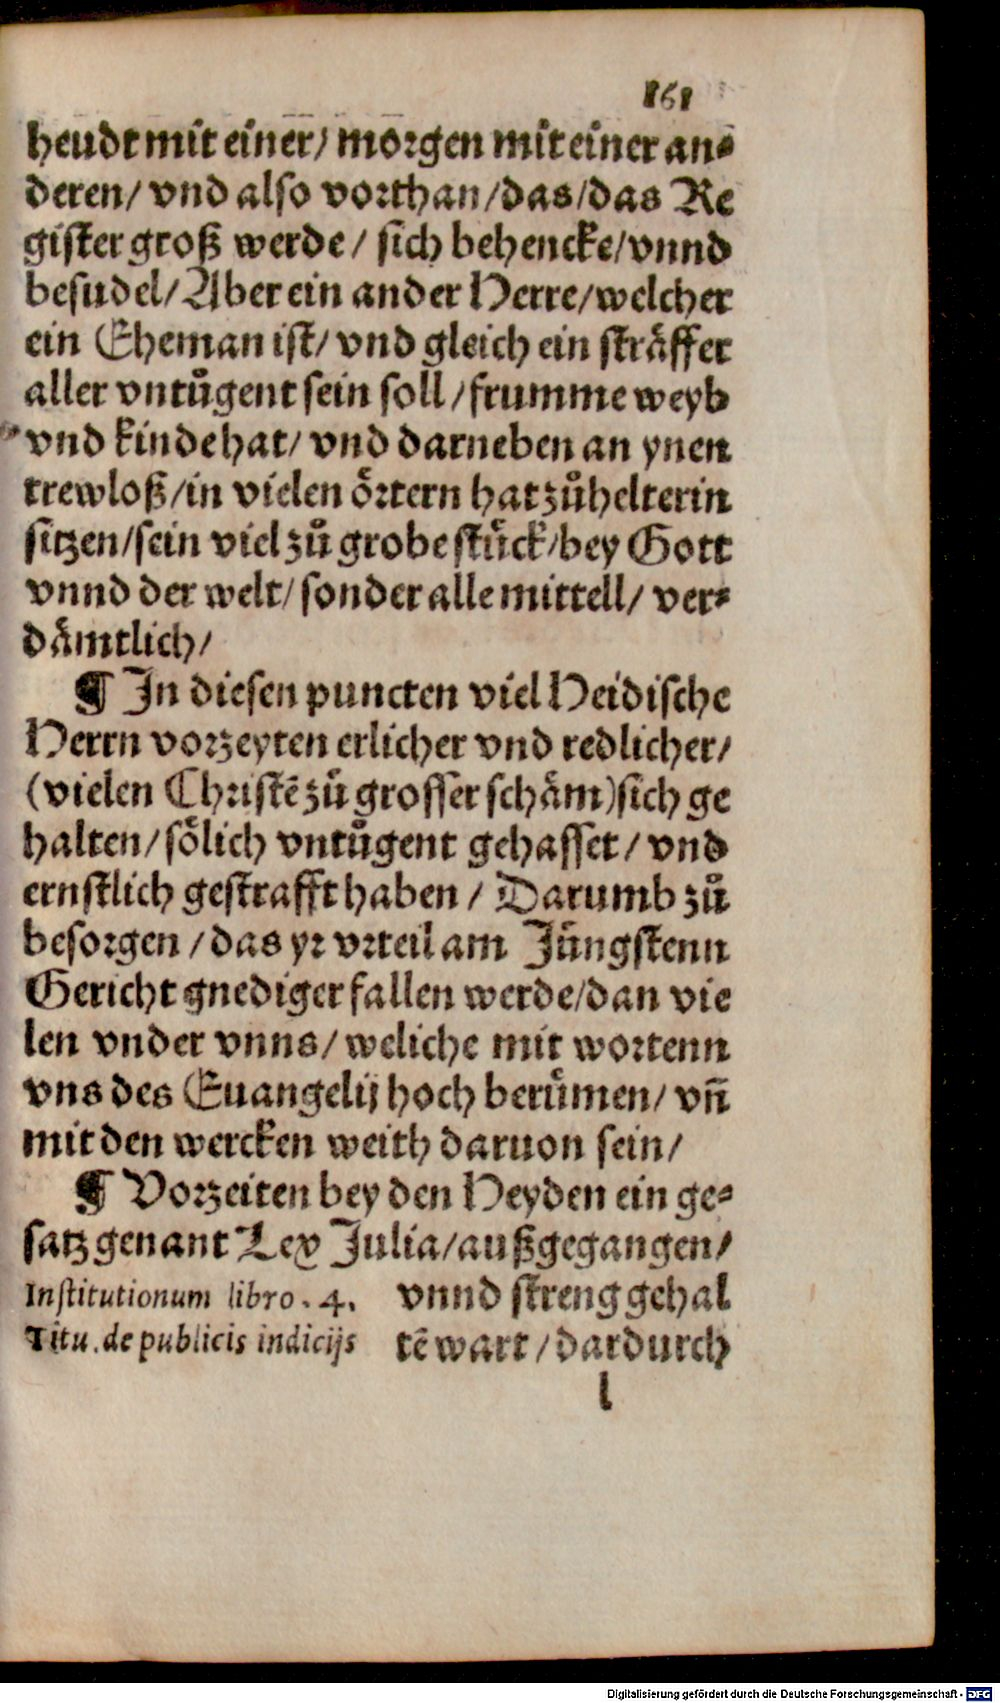 161
heudt mit einer/ morgen mit einer an⸗
deren/ vnd also vorthan/das/das Re
gister groß werde/ sich behencke/vnnd
besudel/Aber ein ander Herre/welcher
ein Eheman ist/ vnd gleich ein sträffer
aller vntůgent sein soll/frumme weyb
vnd kinde hat/ vnd darneben an ynen
trewloß/in vielen örtern hat zůhelterin
sitzen/sein viel zů grobe stück/bey Gott
vnnd der welt/ sonder alle mittell/ ver⸗
dämtlich/
¶ In diesen puncten viel Heidische
Herrn vorzeyten erlicher vnd redlicher/
(vielen Christē zů grosser schäm)sich ge
halten/sölich vntůgent gehasset/ vnd
ernstlich gestrafft haben/ Darumb zů
besorgen/das yr vrteil am Jüngstenn
Gericht gnediger fallen werde/dan vie
len vnder vnns/weliche mit wortenn
vns des Euangelij hoch berümen/ vn̄
mit den wercken weith daruon sein/
¶ Vorzeiten bey den Heyden ein ge⸗
satz genant Lex Julia/außgegangen/
Institutionum libro. 4. vnnd streng gehal
Titu. de publicis indicijs tē wart/dardurch
l
Digitalisierung gefördert durch die Deutsche Forschungsgemeinschaft - DFG